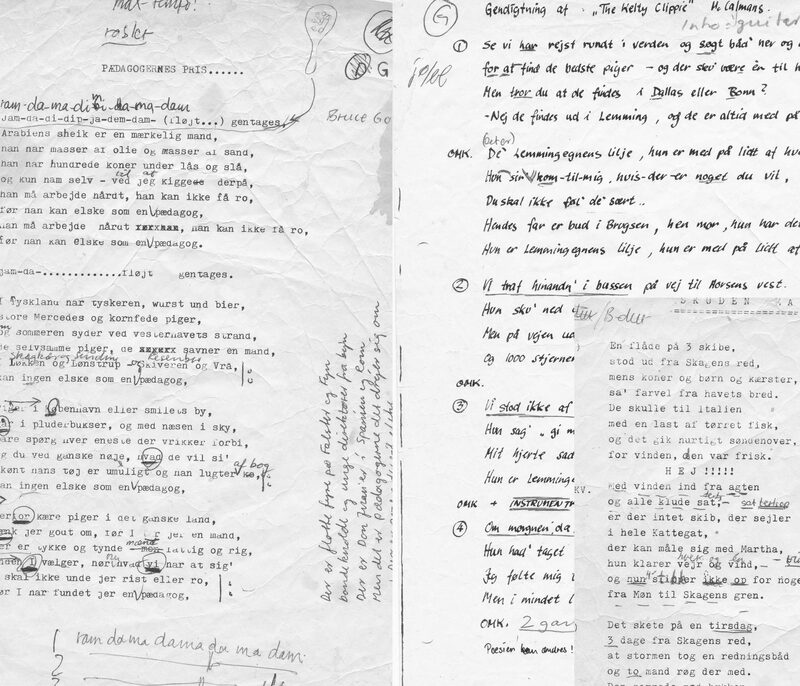 max-tempo!
PÆDAGOGERNES PRIS......
ram-da-ma-di
jam-da-di-dip-ja-dem-dam- (fløjt...) gentages.
Arabiens sheik er en mærkelig mand,
han har masser af olie og masser af sand,
han har hundrede koner under lås og slå,
og kun ham selv - ved jeg kigge derpå,
han må arbejde hårdt, han kan ikke få ro,
før han kan elske som en pædagog,
han må arbejde hårdt, han kan ikke få ro,
før han kan elske som en pædagog.
jam-da-..............fløjt gentages.
I Tyskland har tyskeren, wurst und bier,
store Mercedes og kornfede piger,
og sommeren syder ved vesterhavets strand,
de selvsamme piger, de savner en mand,
i Løkken og Lønstrup og Vrå,
kan ingen elske som en pædagog,
Piger i København eller smilets by,
går i pluderbukser, og med næsen i sky,
bare spørg hver eneste der vrikker forbi,
og du ved ganske nøje, hvad de vil si'
skønt hans tøj er umuligt og han lugter af bog
kan ingen elske som en pædagog,
kære piger i det ganske land,
tænk jer godt om, før I jer en mand,
der er tykke og tynde fattig og rig,
I vælger, nør hvad vi har at sig'
I skal ikke unde jer rist eller ro,
før I har fundet jer en pædagog,
Der er flotte fyre på Falster og Fyn
Bondeknolde og unge direktører fra byn
Der er Don Juan'er i Spanien og Rom
Men det er Pædagogerne det drejer sig om
1 ram da ma dama da ma dam
2
Bruce Go
G
G
Gendigtning af "The Kelty Clippie" M. Calmans.
Intro: guitar
① Se vi har rejst rundt i verden og søgt båd' ner og
for at find de bedste piger - og der sku' være én til h
Men tror du at de findes i Dallas eller Bonn?
- Nej de findes ud i Lemming, og de er altid med på
OMK. De' Lemmingegnens lilje, hun er med på lidt af hve
Hun sir' kom-til-mig, hvis-der-er noget du vil,
Du skal ikke føl' de' sært..
Hendes far er bud i Brugsen, hen mor, hun har det
Hun er Lemmingegnens lilje, hun er med på lidt af
② Vi traf hinandn' i bussen på vej til Horsens vest.
Hun sku' ned
Men på vejen ud
Og 1000 stjerner
OMK.
③ Vi stod ikke af
Hun sag' "gi m
Mit hjerte sad
Hun er Lemminge
OMK + INSTRUMENT
④ Om morgnen da
Hun had' taget
Jeg følte mig
Men i mindet
OMK. 2 gang
Poesien kan ændres!
SKUDEN MA
/B-dur
En flåde på 3 skibe,
stod ud fra Skagens red,
mens koner og børn og kærster,
sa' farvel fra havets bred.
De skulle til Italien
med en last af tørret fisk,
og det gik hurtigt søndenover,
for vinden, den var frisk.
H E J !!!!!
KV. Med vinden ind fra agten
og alle klude sat,
er der intet skib, der sejler
i hele Kattegat,
der kan måle sig med Martha,
hun klarer vejr og vind,
og hun ikke op for noge
fra Møn til Skagens gren.
Det skete på en tirsdag,
3 dage fra Skagens red,
at stormen tog en redningsbåd
og to mand røg der med.